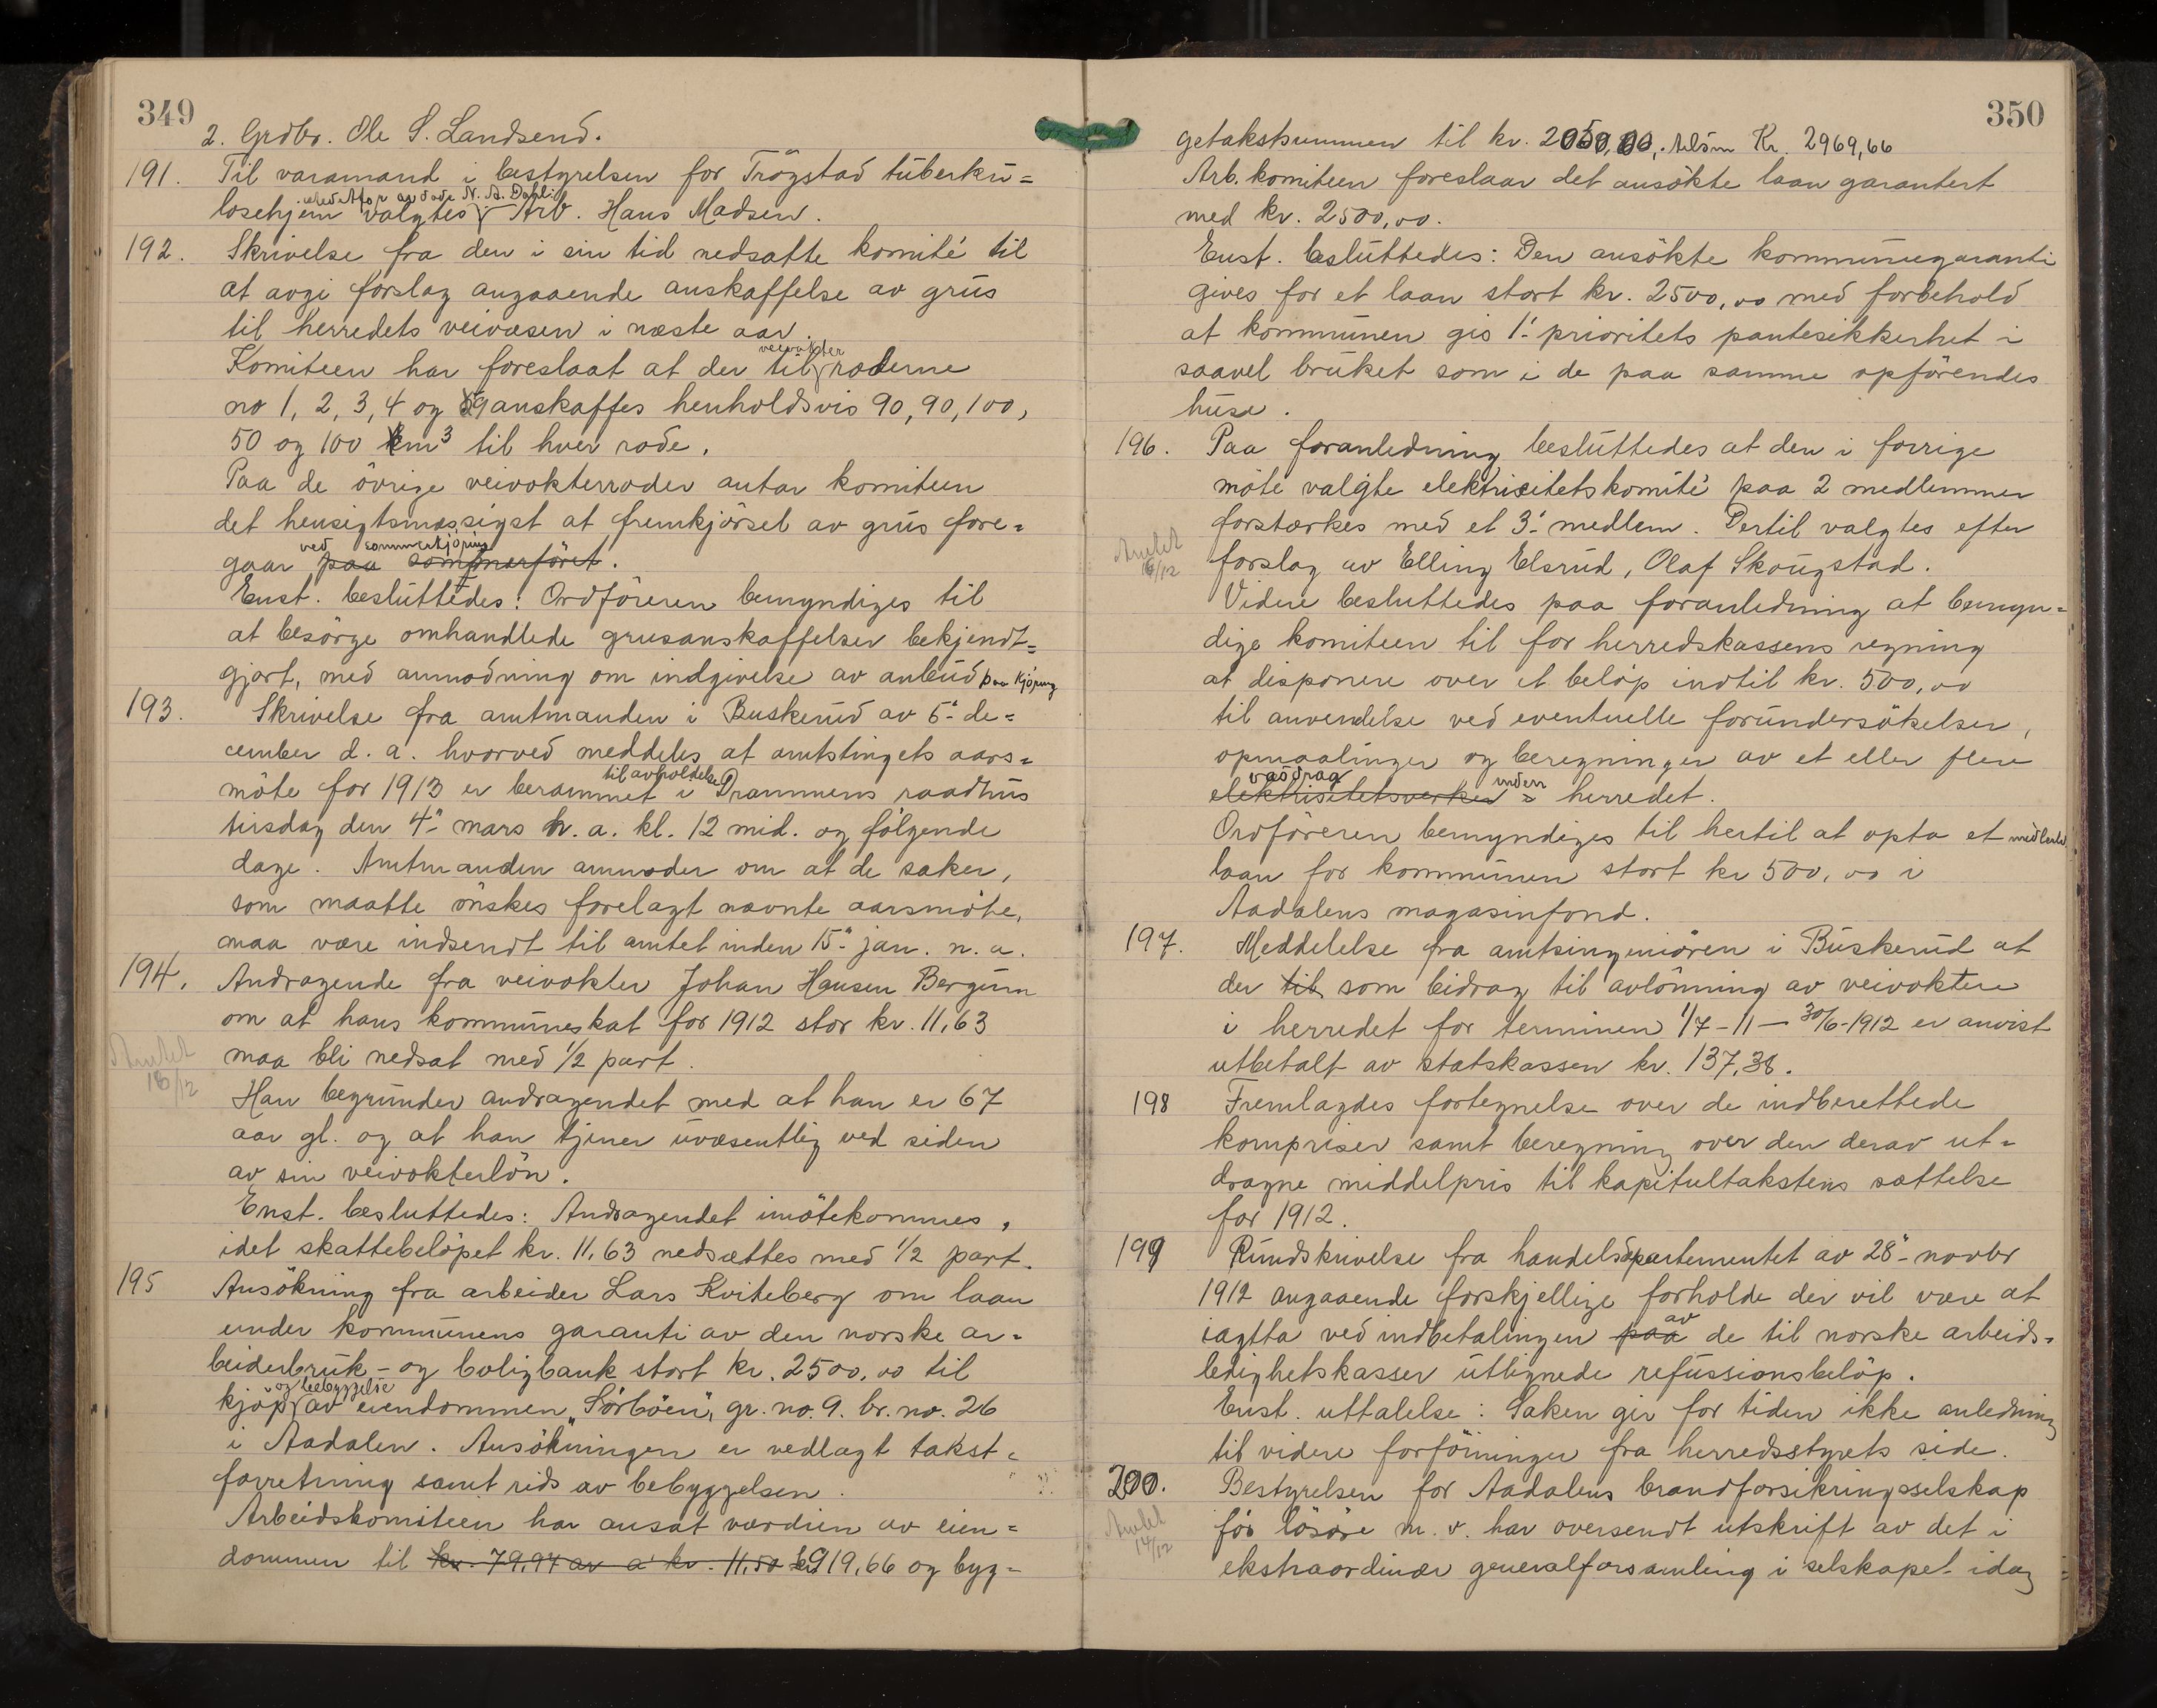 349
2. Grdbr. Ole S. Landsend.
191. Til varamand i bestyrelsen for Trögstad tuberku=
losehjem valgtes N. A. Dahlis Arb. Hans Madsen.
192. Skrivelse fra den i sin tid nedsatte komité til
at avgi forslag angaaende anskaffelse av grus
til herredets veivæsen i næste aar.
Komiteen har foreslaat at der til veivokter roderne
no 1, 2, 3, 4 og 9 anskaffes henholdsvis 90, 90, 100,
50 og 100 m3 til hver rode.
Paa de övrige veivokterroder antar komiteen
det hensigtsmæssigst at fremkjörsel av grus fore=
gaar paa sommerföret ved sommerkjöring.
Enst. besluttedes: Ordföreren bemyndiges til
at besörge omhandlede grusanskaffelser bekjendt=
gjort, med anmodning om indgivelse av anbud paa kjöring
193. Skrivelse fra amtmanden i Buskerud av 5' de=
cember d. a. hvorved meddeles at amtstingets aars=
möte for 1913 er berammet til avholdelse i Drammens raadhus
tirsdag den 4' mars n. a. kl. 12 mid. og fölgende
dage. Amtmanden anmoder om at de saker,
som maatte önskes forelagt nævnte aarsmöte,
maa være indsendt til amtet inden 15' jan. n. a.
194. Andragende fra veivokter Johan Hansen Bergum
om at hans kommuneskat for 1912 stor kr. 11,63
maa bli nedsat med 1/2 part.
Amtet 16/12
Han begrunder andragendet med at han er 67
aar gl. og at han tjener uvæsentlig ved siden
av sin veivokterlön.
Enst. besluttedes: Andragendet imötekommes,
idet skattebelöpet kr. 11,63 nedsættes med 1/2 part.
195 Ansökning fra arbeider Lars Kviteberg om laan
under kommunens garanti av den norske ar=
beiderbruk- og boligbank stort kr. 2500,00 til
kjöp og bebyggelse av eiendommen "Sörböen", gr. no. 9. br. no. 26
i Aadalen. Ansökningen er vedlagt takst=
forretning samt rids av bebyggelsen.
Arbeidskomiteen har ansat værdien av eien=
dommen til kr. 79,97 av a kr. 11,50 kr 919,66 og byg=
350
getakstsummen til kr. 2050,00, tilsm Kr. 2969,66
Arb. komiteen foreslaar det ansökte laan garantert
med kr. 2500,00.
Enst. besluttedes: Den ansökte kommunegaranti
gives for et laan stort kr. 2500,00 med forbehold
at kommunen gis 1' prioritets pantesikkerhet i
saavel bruket som i de paa samme opförendes
huse.
196. Paa foranledning besluttedes at den i forrige
möte valgte elektricitetskomité paa 2 medlemmer
forstærkes med et 3' medlem. Dertil valgtes efter
forslag av Elling Elsrud, Olaf Skougstad.
Amtet 16/12
Videre besluttedes paa foranledning at bemyn=
dige komiteen til for herredskassens regning
at disponere over et belöp indtil kr. 500,00
til anvendelse ved eventuelle forundersökelser,
opmaalinger og beregninger av et eller flere
elektrisitetsverker vasdrag inden herredet.
Ordföreren bemyndiges til hertil at opta et
laan for kommunen stort kr 500,00 i
Aadalens magasinfond.
197. Meddelelse fra amtsingeniören i Buskerud at
der til som bidrag til avlönning av veivoktere
i herredet for terminen 1/7-11 – 30/6-1912 er anvist
utbetalt av statskassen kr. 137,38.
198 Fremlagdes fortegnelse over de indberettede
kornpriser samt beregning over den derav ut=
dragne middelpris til kapitultakstens sættelse
for 1912.
199 Rundskrivelse fra handelsdepartementet av 28' novbr
1912 angaaende forskjellige forholde der vil være at
iagtta ved indbetalingen paa av de til norske arbeids=
ledighetskasser utlignede refusionsbelöp.
Enst. uttalelse: Saken gir for tiden ikke anledning
til videre forföininger fra herredsstyrets side.
200. Bestyrelsen for Aadalens brandforsikringsselskap
for lösöre m. v. har oversendt utskrift av det i
Amtet 14/12
ekstraordinær generalforsamling i selskapet idag